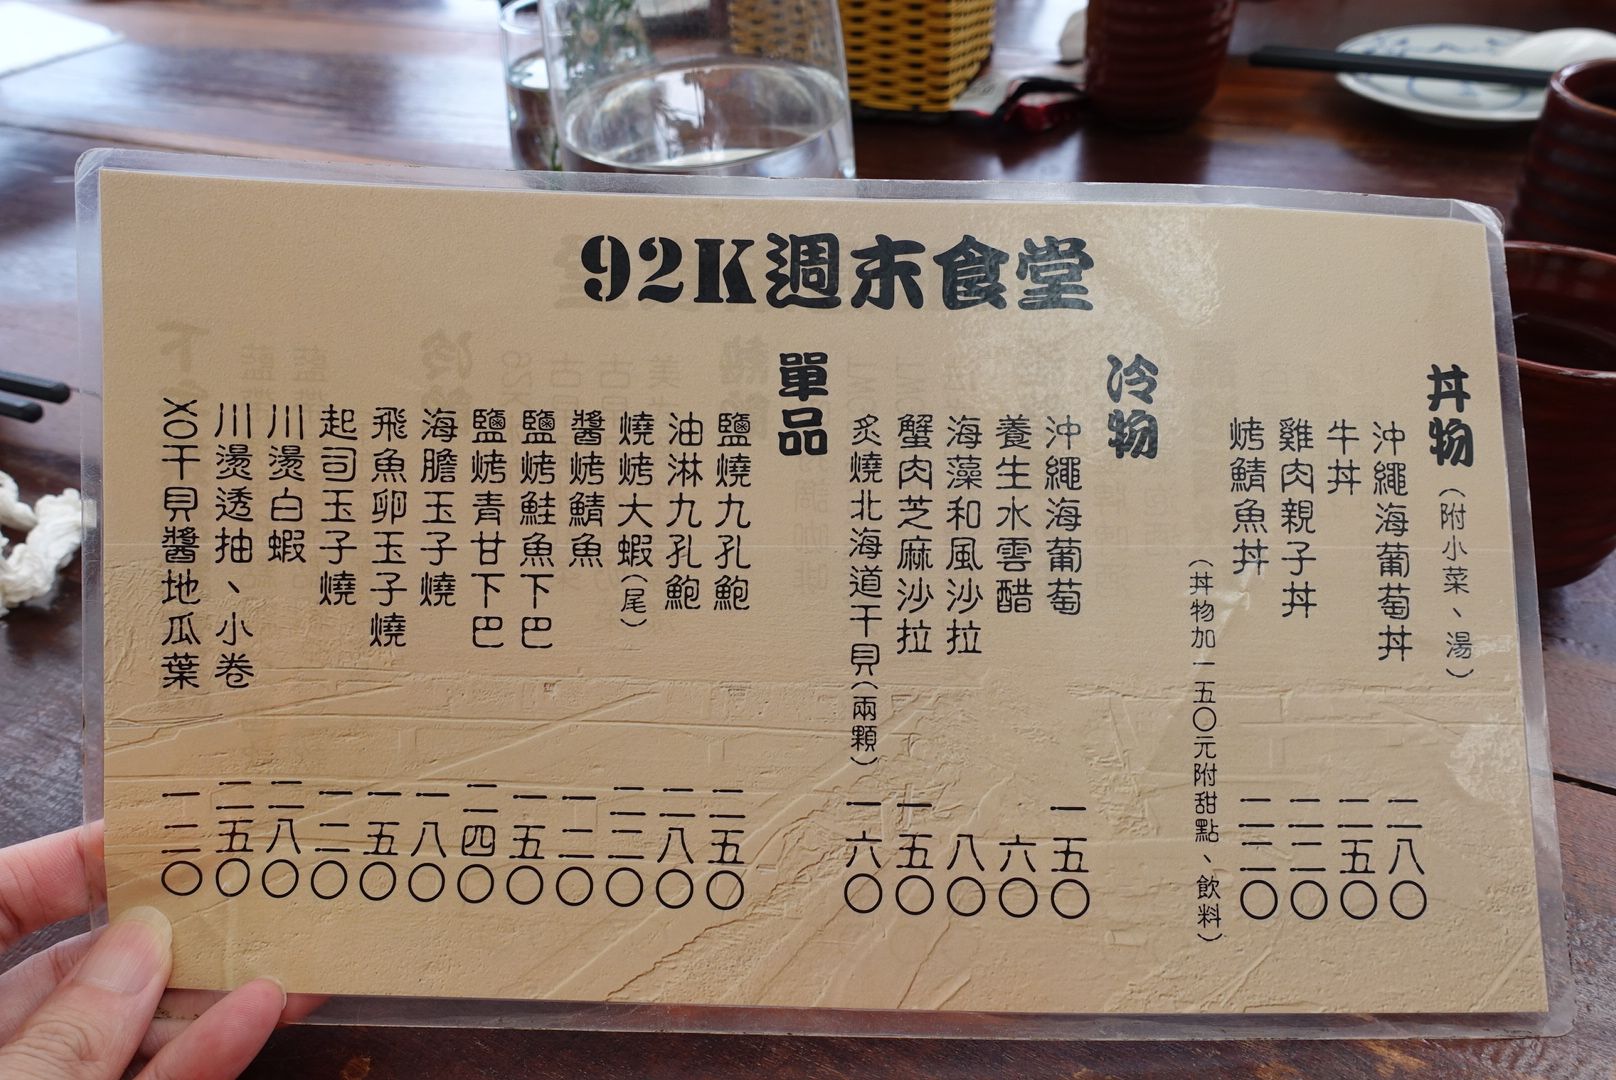 92K週末食堂
丼物(附小菜、湯)
沖繩海葡萄丼 二八〇
牛丼 二五〇
雞肉親子丼 二二〇
烤鯖魚丼 二二〇
(丼物加一五〇元附甜點、飲料)
冷物
沖繩海葡萄 一五〇
養生水雲醋 六〇
海藻和風沙拉 八〇
蟹肉芝麻沙拉 一五〇
炙燒北海道干貝(兩顆) 一六〇
單品
鹽燒九孔鮑 二五〇
油淋九孔鮑 二八〇
燒烤大蝦(尾) 二二〇
醬烤鯖魚 一二〇
鹽烤鮭魚下巴 一五〇
鹽烤青甘下巴 二四〇
海膽玉子燒 一八〇
飛魚卵玉子燒 一五〇
起司玉子燒 一二〇
川燙白蝦 二八〇
川燙透抽、小卷 二五〇
XO干貝醬地瓜葉 一二〇